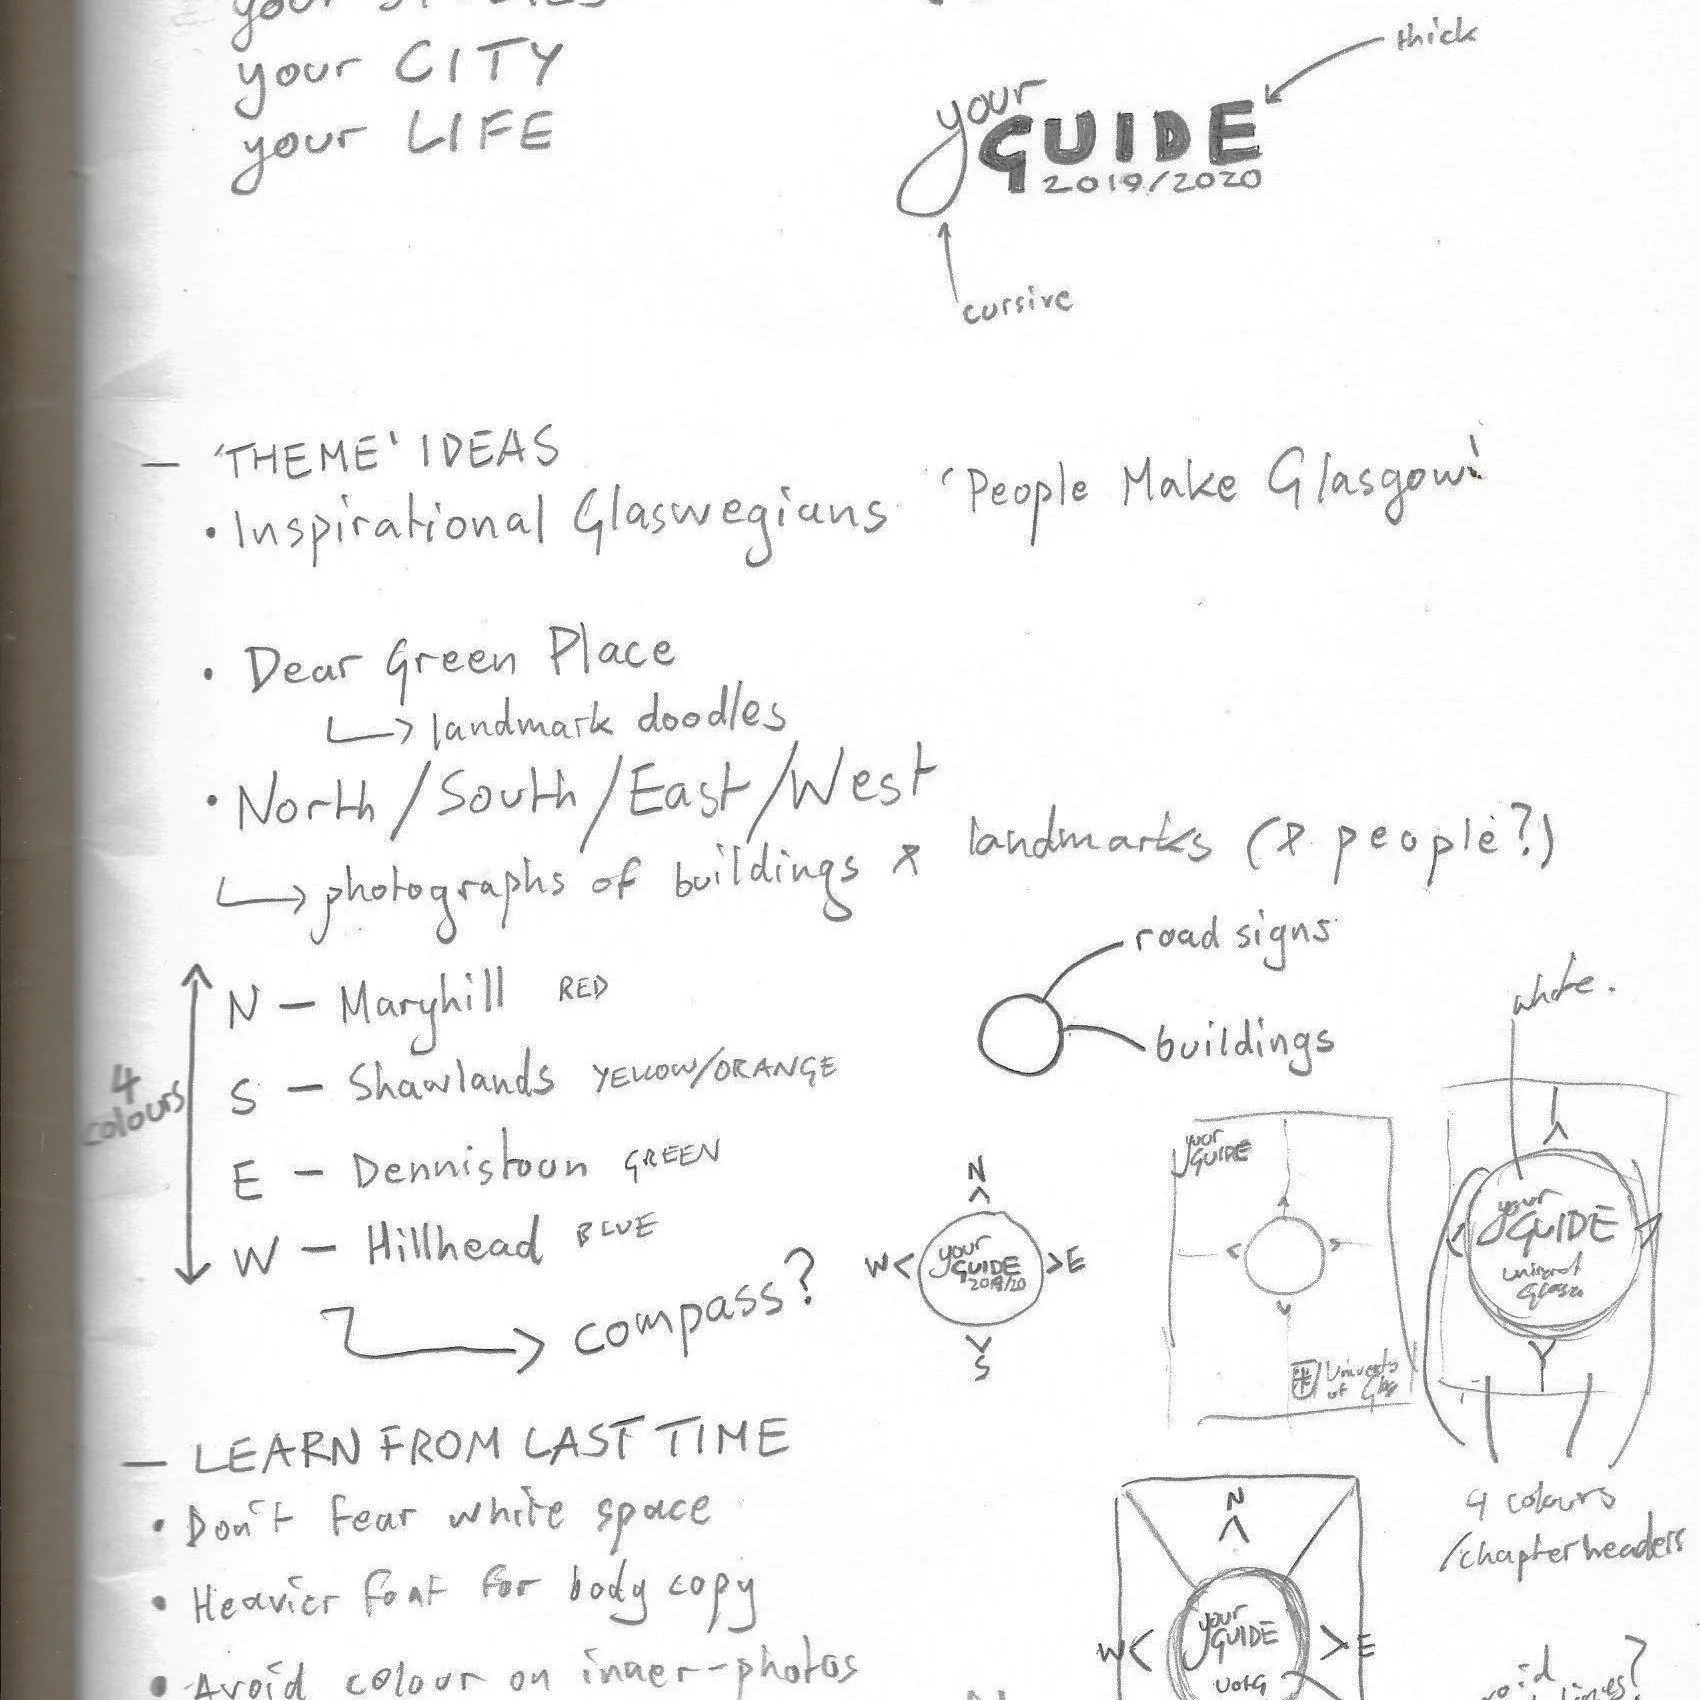 your
your CITY
your LIFE
thick
your
GUIDE
2019/2020
cursive
— 'THEME' IDEAS
• Inspirational Glaswegians 'People Make Glasgow'
• Dear Green Place
landmark doodles
• North/South/East/West
photographs of buildings & landmarks (& people?)
road signs
buildings
white.
4
colours
N — Maryhill RED
S — Shawlands YELLOW/ORANGE
E — Dennistoun GREEN
W — Hillhead BLUE
compass?
N
W
your
GUIDE
2019/20
E
S
your
GUIDE
of
your
GUIDE
4 colours
/chapter headers
— LEARN FROM LAST TIME
• Don't fear white space
• Heavier font for body copy
• Avoid colour on inner-photos
N
W
your
GUIDE
UofG
E